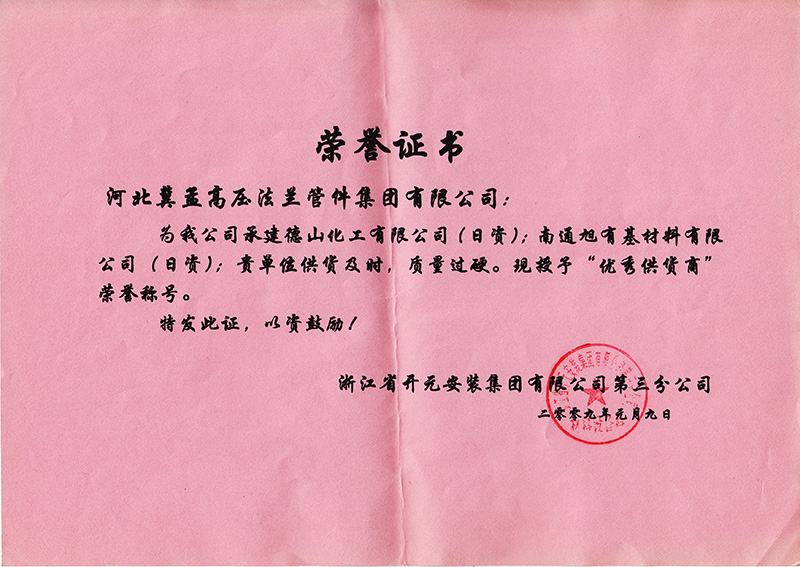 荣誉证书
河北冀孟高压法兰管件集团有限公司：
为我公司承建德山化工有限公司（日资）；南通旭有基材料有限
公司（日资）；贵单位供货及时，质量过硬。现授予“优秀供货商”
荣誉称号。
特发此证，以资鼓励！
浙江省开元安装集团有限公司第三分公司
二零零九年元月九日